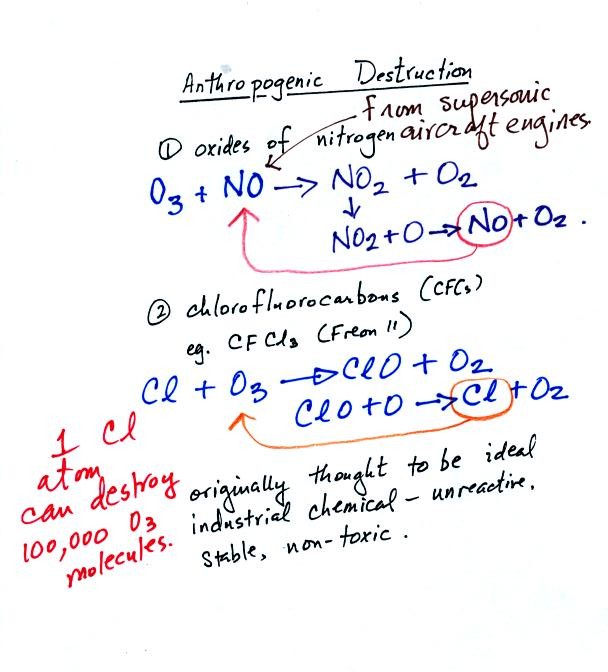 Anthropogenic Destruction
from supersonic
aircraft engines.
① oxides of nitrogen
O₃ + NO → NO₂ + O₂
↓
NO₂ + O → NO + O₂ .
② chlorofluorocarbons (CFCs)
eg. CFCl₃ (Freon 11)
Cl + O₃ → ClO + O₂
ClO + O → Cl + O₂
1 Cl
atom
can destroy
100,000 O₃
molecules.
originally thought to be ideal
industrial chemical - unreactive,
stable, non-toxic .